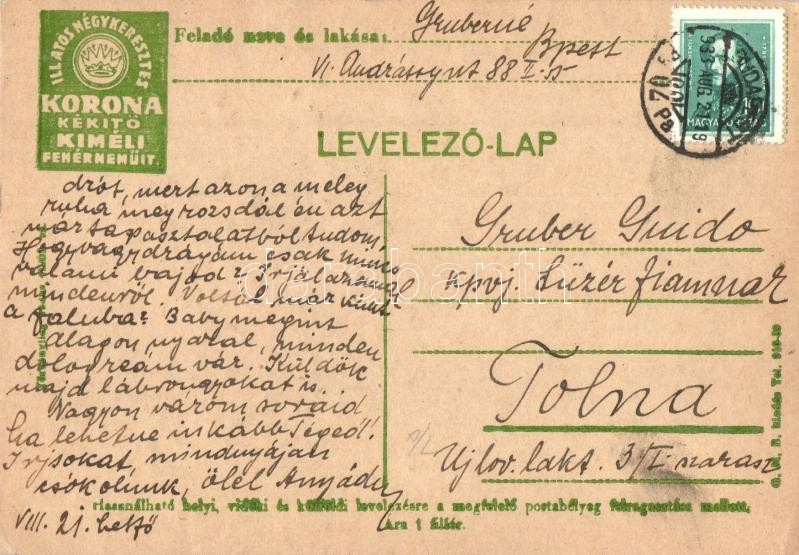 ILLATOS NÉGYKERESZTES
KORONA
KÉKITŐ
KIMÉLI
FEHÉRNEMŰIT.
Feladó neve és lakása: Gruberné
Bpest
VI. Andrássy ut 88 II. 15
933 AUG. 21
MAGYAR
LEVELEZŐ-LAP
drót, mert azon a meleg
ruha megrozsdál én azt
már tapasztalatból tudom.
Hogy vagy drágám csak nincs
valami bajod? Irjál azonnal
mindenről. Voltál már kint
a faluba? Baby megint
alagon nyaral, minden
dolog reám vár. Küldök
majd lábrongyokat is.
Nagyon várom soraid
ha lehetne inkább Téged!
Irj sokat, mindnyájan
csókolunk, ölel Anyád
VIII. 21. hetfő
Gruber Guido
kpvj. tüzér
Tolna
Uj lov. lakt. 3/I.
használható helyi, vidéki és külföldi levelezésre a megfelelő postabélyeg felragasztása mellett.
Ára 1 fillér.
databanth